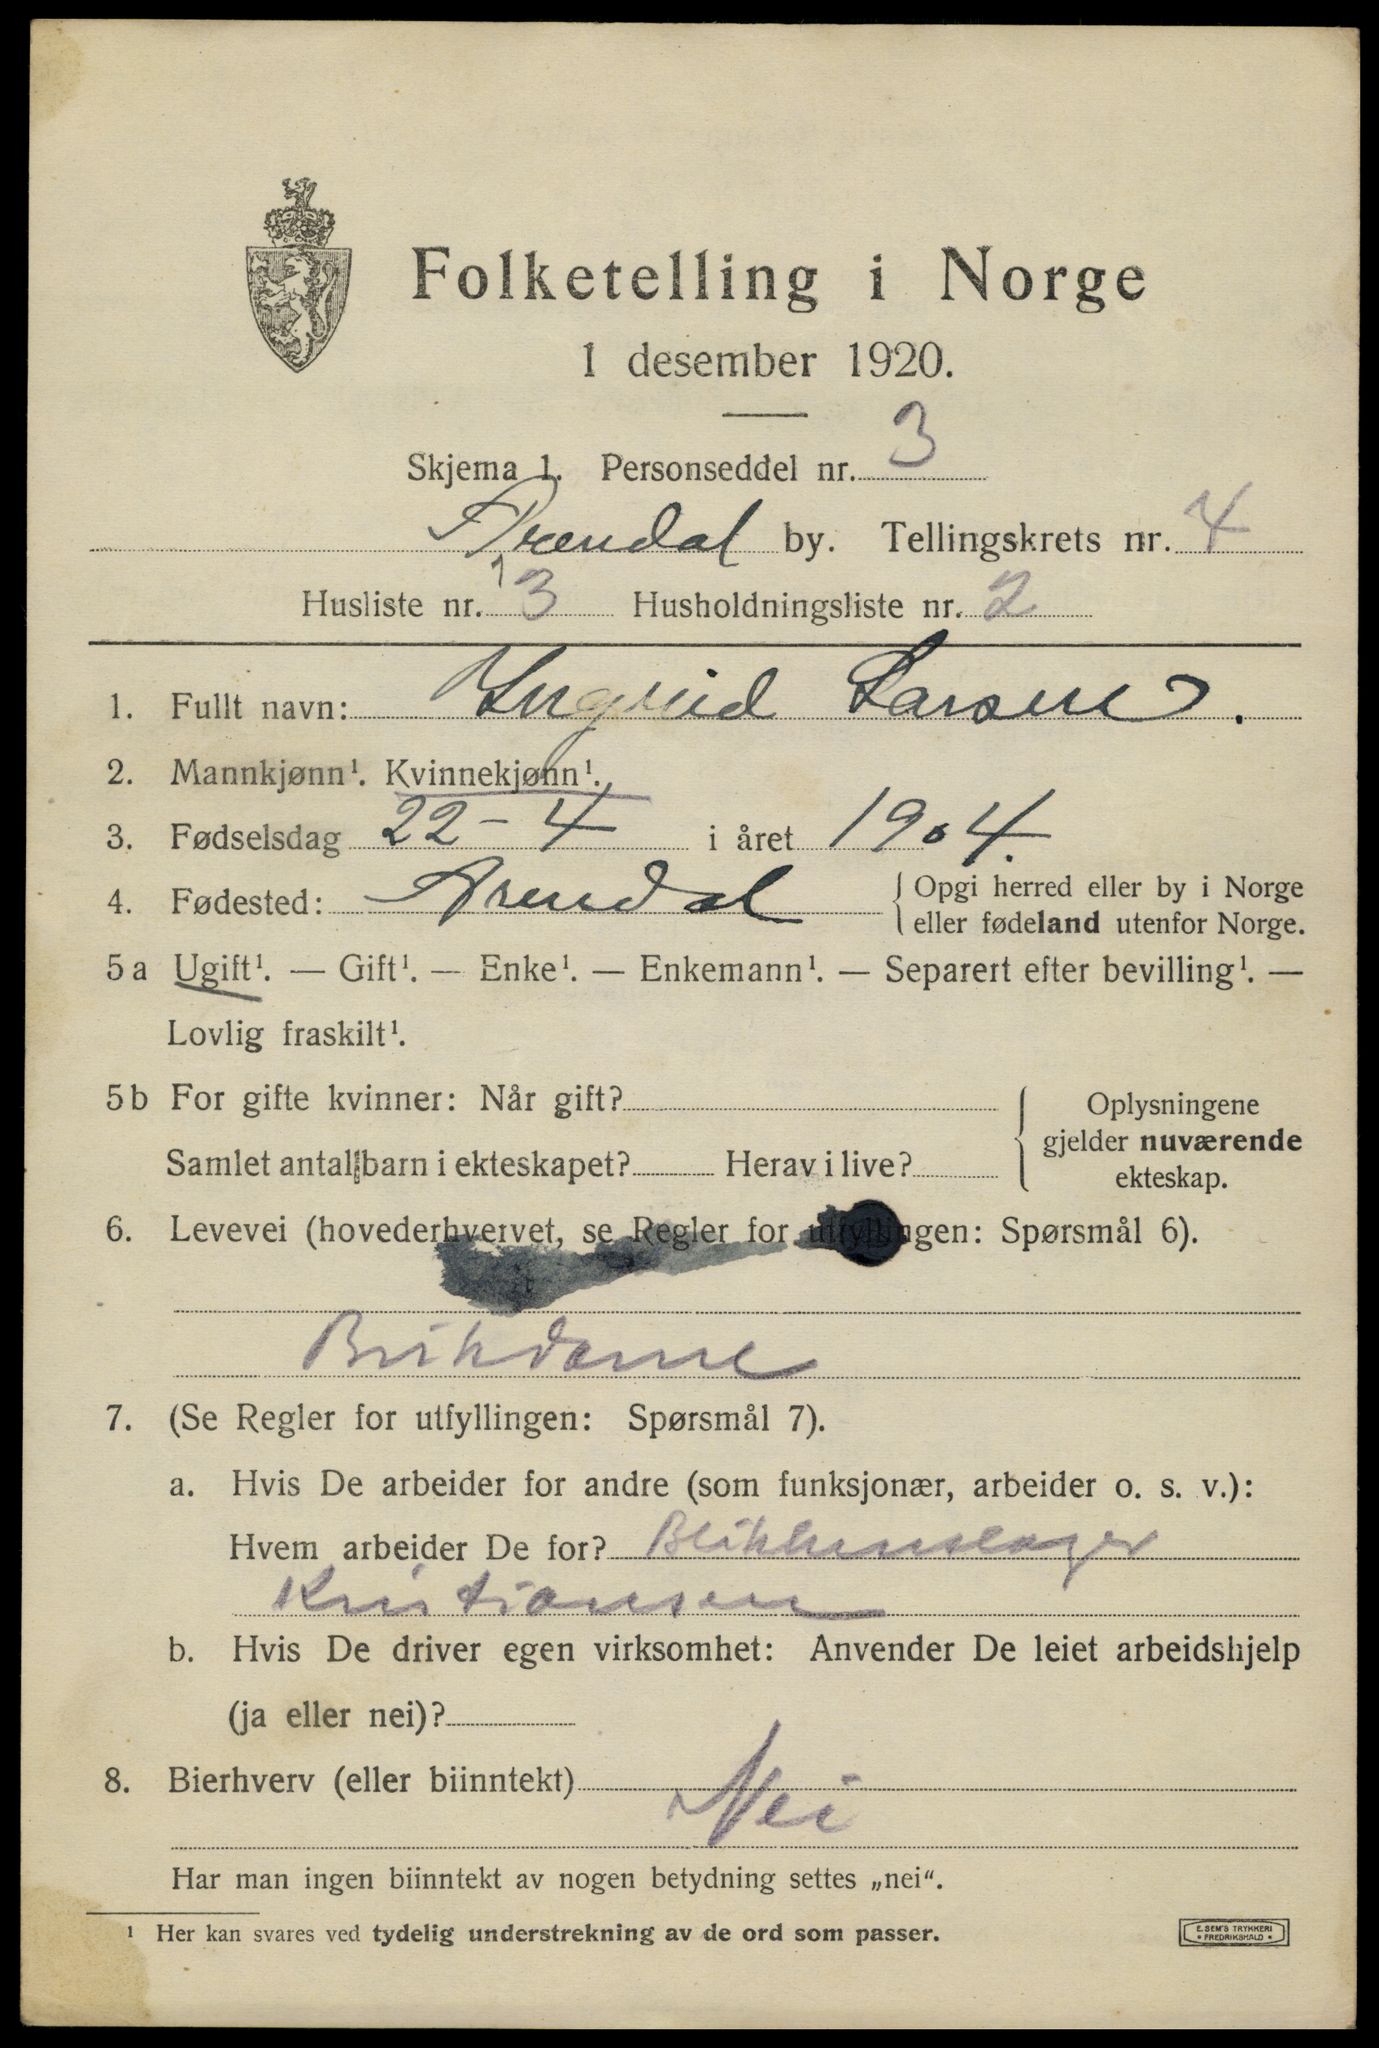 Folketelling i Norge
1 desember 1920.
Skjema 1. Personseddel nr. 3
Arendal by. Tellingskrets nr. 4
Husliste nr. 3 Husholdningsliste nr. 2
1. Fullt navn: Ingrid Larsen.
2. Mannkjønn¹. Kvinnekjønn¹.
3. Fødselsdag 22-4 i året 1904.
4. Fødested: Arendal { Opgi herred eller by i Norge
eller fødeland utenfor Norge.
5a Ugift¹. — Gift¹. — Enke¹. — Enkemann¹. — Separert efter bevilling¹. —
Lovlig fraskilt¹.
5b For gifte kvinner: Når gift?
Samlet antal barn i ekteskapet? Herav i live?
Oplysningene
gjelder nuværende
ekteskap.
6. Levevei (hovederhvervet, se Regler for utfyllingen: Spørsmål 6).
Butikdame
7. (Se Regler for utfyllingen: Spørsmål 7).
a. Hvis De arbeider for andre (som funksjonær, arbeider o. s. v.):
Hvem arbeider De for? Blikkenslager
Kristiansen
b. Hvis De driver egen virksomhet: Anvender De leiet arbeidshjelp
(ja eller nei)?
8. Bierhverv (eller biinntekt)
Nei
Har man ingen biinntekt av nogen betydning settes „nei“.
¹ Her kan svares ved tydelig understrekning av de ord som passer.
E. SEM'S TRYKKERI
• FREDRIKSHALD •